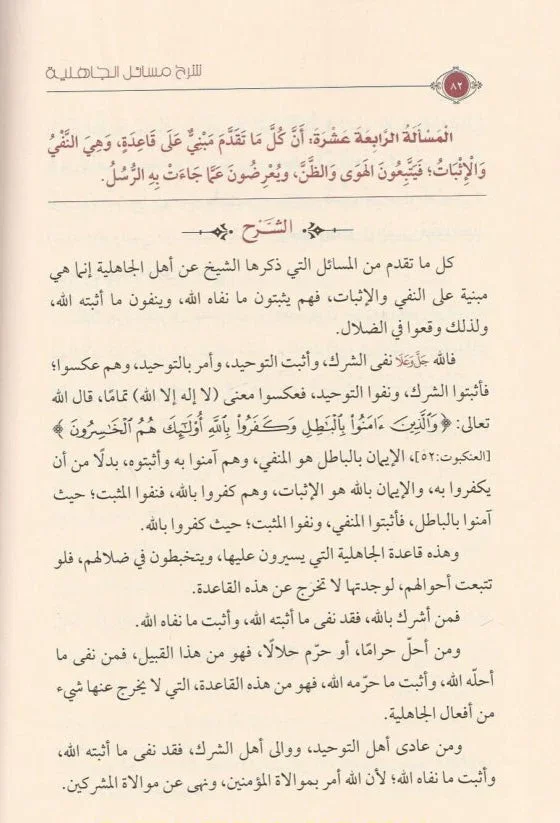 شرح مسائل الجاهلية
٨٢
الْمَسْأَلَةُ الرَّابِعَةَ عَشْرَةَ: أَنَّ كُلَّ مَا تَقَدَّمَ مَبْنِيٌّ عَلَى قَاعِدَةٍ، وَهِيَ النَّفْيُ
وَالْإِثْبَاتُ؛ فَيَتَّبِعُونَ الْهَوَى وَالظَّنَّ، وَيُعْرِضُونَ عَمَّا جَاءَتْ بِهِ الرُّسُلُ.
الشَّرْح
كل ما تقدم من المسائل التي ذكرها الشيخ عن أهل الجاهلية إنما هي
مبنية على النفي والإثبات، فهم يثبتون ما نفاه الله، وينفون ما أثبته الله،
ولذلك وقعوا في الضلال.
فالله جَلَّ وَعَلَا نفى الشرك، وأثبت التوحيد، وأمر بالتوحيد، وهم عكسوا؛
فأثبتوا الشرك، ونفوا التوحيد، فعكسوا معنى (لا إله إلا الله) تمامًا، قال الله
تعالى: ﴿وَالَّذِينَ ءَامَنُوا۟ بِالْبَٰطِلِ وَكَفَرُوا۟ بِاللَّهِ أُو۟لَٰٓئِكَ هُمُ الْخَٰسِرُونَ﴾
[العنكبوت:٥٢]، الإيمان بالباطل هو المنفي، وهم آمنوا به وأثبتوه، بدلًا من أن
يكفروا به، والإيمان بالله هو الإثبات، وهم كفروا بالله، فنفوا المثبت؛ حيث
آمنوا بالباطل، فأثبتوا المنفي، ونفوا المثبت؛ حيث كفروا بالله.
وهذه قاعدة الجاهلية التي يسيرون عليها، ويتخبطون في ضلالهم، فلو
تتبعت أحوالهم، لوجدتها لا تخرج عن هذه القاعدة.
فمن أشرك بالله، فقد نفى ما أثبته الله، وأثبت ما نفاه الله.
ومن أحلّ حرامًا، أو حرّم حلالًا، فهو من هذا القبيل، فمن نفى ما
أحلّه الله، وأثبت ما حرّمه الله، فهو من هذه القاعدة، التي لا يخرج عنها شيء
من أفعال الجاهلية.
ومن عادى أهل التوحيد، ووالى أهل الشرك، فقد نفى ما أثبته الله،
وأثبت ما نفاه الله؛ لأن الله أمر بموالاة المؤمنين، ونهى عن موالاة المشركين.